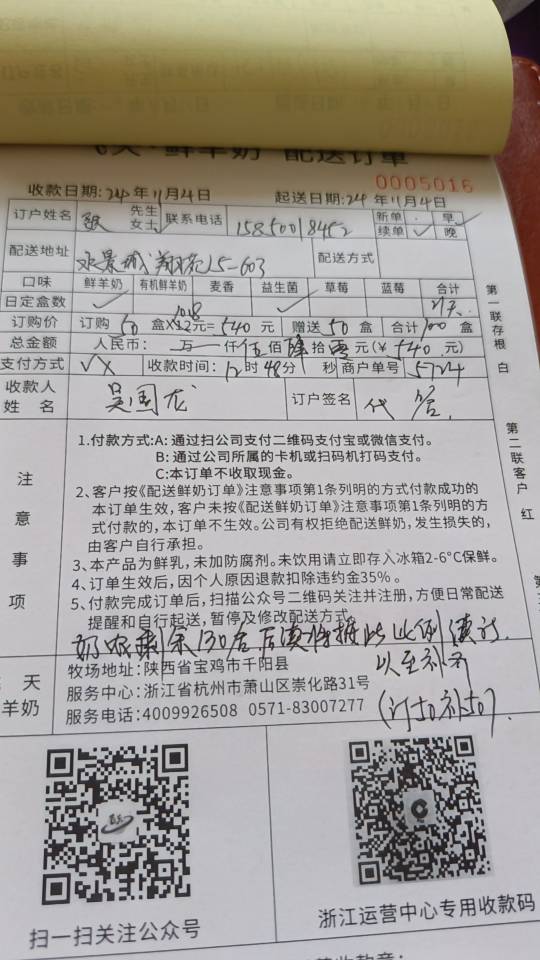 天·鲜羊奶 配送订单
0005016
收款日期:24年11月4日 起送日期:24年11月4日
订户姓名 先生 女士 联系电话 15850018452 新单 续单 ✓ 早 ✓ 晚
配送地址 水景城翔苑15-603 配送方式
口味 鲜羊奶 有机鲜羊奶 麦香 益生菌 草莓 蓝莓 合计
日定盒数 ✓ ✓
订购价 订购 50 盒×12元=540元 赠送 50 盒 合计 100 盒
10.8
总金额 人民币: 万 仟 伍 佰 肆 拾 零 元(¥ 540 元)
支付方式 VX 收款时间: 12时48分 秒 商户单号 5724
收款人姓名 吴国龙 订户签名 代签
注意事项
1.付款方式:A: 通过扫公司支付二维码支付宝或微信支付。
B: 通过公司所属的卡机或扫码机打码支付。
C:本订单不收取现金。
2、客户按《配送鲜奶订单》注意事项第1条列明的方式付款成功的
本订单生效，客户未按《配送鲜奶订单》注意事项第1条列明的方
式付款的，本订单不生效。公司有权拒绝配送鲜奶，发生损失的，
由客户自行承担。
3、本产品为鲜乳，未加防腐剂。未饮用请立即存入冰箱2-6°C保鲜。
4、订单生效后，因个人原因退款扣除违约金35%。
5、付款完成订单后，扫描公众号二维码关注并注册，方便日常配送
提醒和自行起送，暂停及修改配送方式
130
后续
此比例续订
以至补齐
(订50补50).
天
羊奶
牧场地址:陕西省宝鸡市千阳县
服务中心:浙江省杭州市萧山区崇化路31号
服务电话:4009926508 0571-83007277
扫一扫关注公众号
浙江运营中心专用收款码
第一联存根 白
第二联客户 红